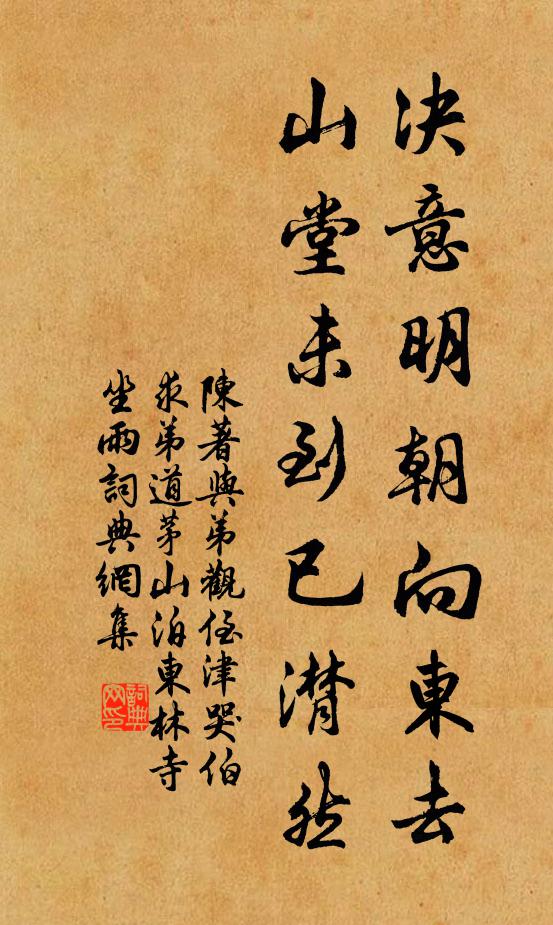 决意明朝向東去
山堂未到已潸然
陳著與弟觀侄津哭伯
求弟道茅山泊東林寺
坐雨詞典網集
詞典
网印